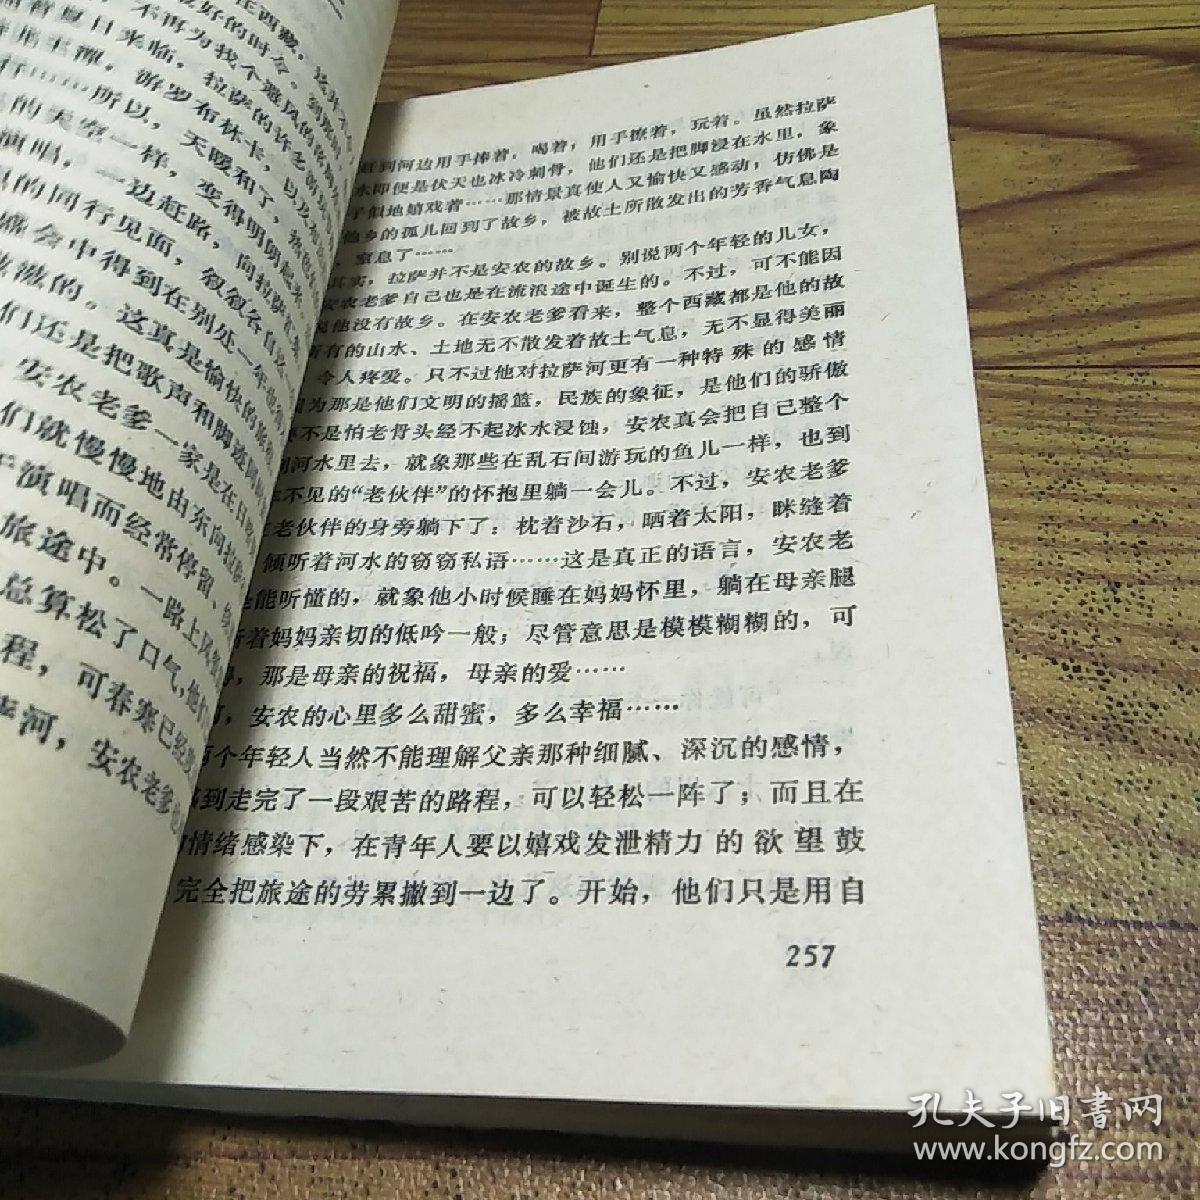 在西藏，这并不
最好的时令。到那时
不再为找个避风的落脚
随着夏日来临，拉萨的许多游
游罗布林卡，以及
行……所以，天暖和了，热
的天空一样，变得明朗起来。
演唱，一边赶路，向拉萨
的同行见面，叙叙各自
盛会中得到在别处一年也
滋滋的。这真是愉快的旅
们还是把歌声和脚迹
安农老爹一家是在日
们就慢慢地由东向拉
演唱而经常停留、
旅途中。一路上风
总算松了口气，他们
程，可春寒已经
河，安农老爹
赶到河边用手捧着，喝着，用手撩着，玩着。虽然拉萨
水即便是伏天也冰冷刺骨，他们还是把脚浸在水里，象
子似地嬉戏着……那情景真使人又愉快又感动，仿佛是
他乡的孤儿回到了故乡，被故土所散发出的芳香气息陶
窒息了……
其实，拉萨并不是安农的故乡。别说两个年轻的儿女，
安农老爹自己也是在流浪途中诞生的。不过，可不能因
说他没有故乡。在安农老爹看来，整个西藏都是他的故
所有的山水、土地无不散发着故土气息，无不显得美丽
令人疼爱。只不过他对拉萨河更有一种特殊的感情
因为那是他们文明的摇篮，民族的象征，是他们的骄傲
不是怕老骨头经不起冰水浸蚀，安农真会把自己整个
到河水里去，就象那些在乱石间游玩的鱼儿一样，也到
不见的“老伙伴”的怀抱里躺一会儿。不过，安农老爹
老伙伴的身旁躺下了：枕着沙石，晒着太阳，眯缝着
倾听着河水的窃窃私语……这是真正的语言，安农老
全能听懂的，就象他小时候睡在妈妈怀里，躺在母亲腿
听着妈妈亲切的低吟一般；尽管意思是模模糊糊的，可
得，那是母亲的祝福，母亲的爱……
，安农的心里多么甜蜜，多么幸福……
两个年轻人当然不能理解父亲那种细腻、深沉的感情，
感到走完了一段艰苦的路程，可以轻松一阵了；而且在
的情绪感染下，在青年人要以嬉戏发泄精力的欲望鼓
完全把旅途的劳累撇到一边了。开始，他们只是用自
257
孔夫子旧书网
www.kongfz.com